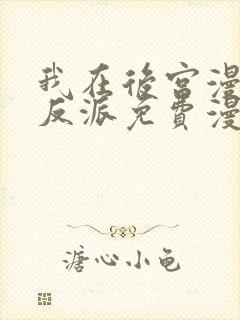 我在後宮漫
反派免費漫
溏心小龟